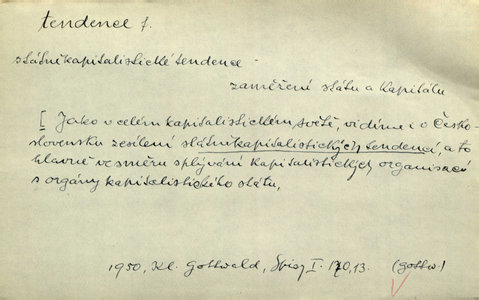 tendence f.
státněkapitalistické tendence
zaměření státu a kapitálu
I Jako v celém kapitalistickém světě, vidíme i v Česko-
slovensku zesílení státněkapitalistických tendencí, a to
hlavně ve směru splývání kapitalistických organisací
s orgány kapitalistického státu,
1950, Kl. Gottwald, Spisy I. 170,13. (Gottw.)